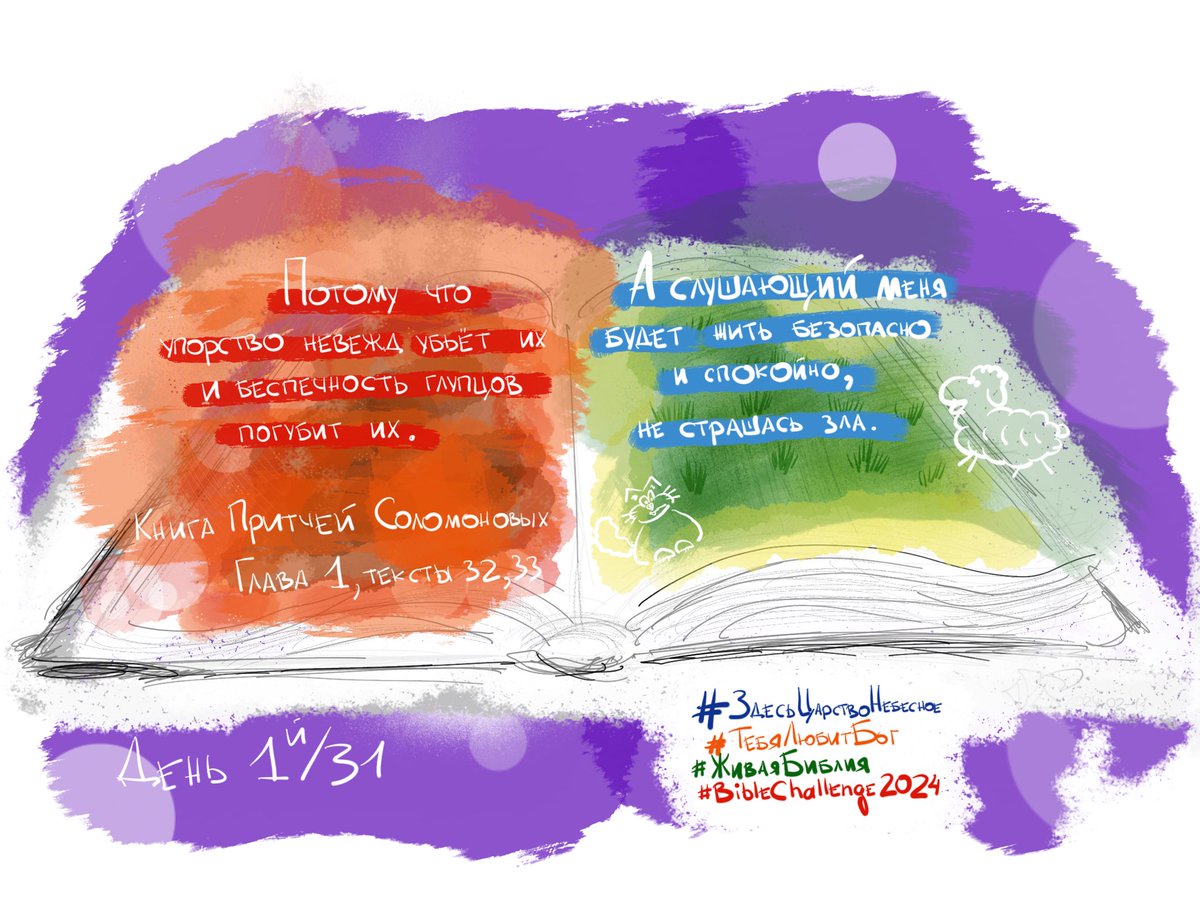 Потому что
упорство невежд убьёт их
и беспечность глупцов
погубит их.
Книга Притчей Соломоновых
Глава 1, тексты 32,33
А слушающий меня
будет жить безопасно
и спокойно,
не страшась зла.
День 1й/31
#ЗдесьЦарствоНебесное
#ТебяЛюбитБог
#ЖиваяБиблия
#BibleChallenge2024